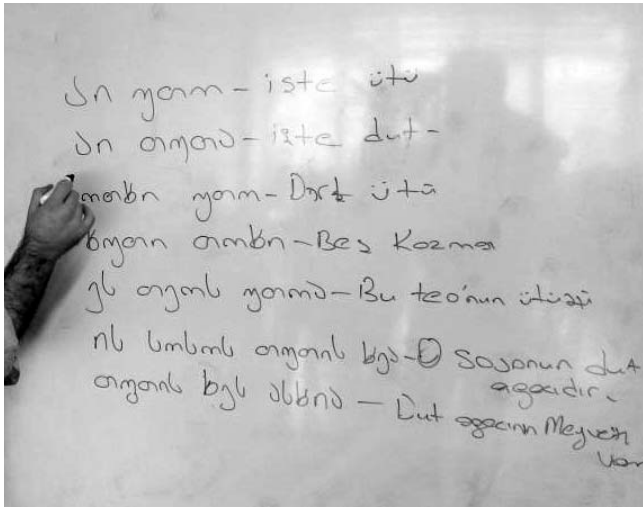 აი უთო - iste ütü
აი თუთა - işte dut -
ოთხი უთო - Dört ütü
ხუთი თოხი - Beş Kazma
ეს თეოს უთოა - Bu teo'nun ütüsü
ის სოსოს თუთის ხეა - O sosonun dut
agacıdır.
თუთის ხეს ასხია — Dut agacının Meyvesi
var